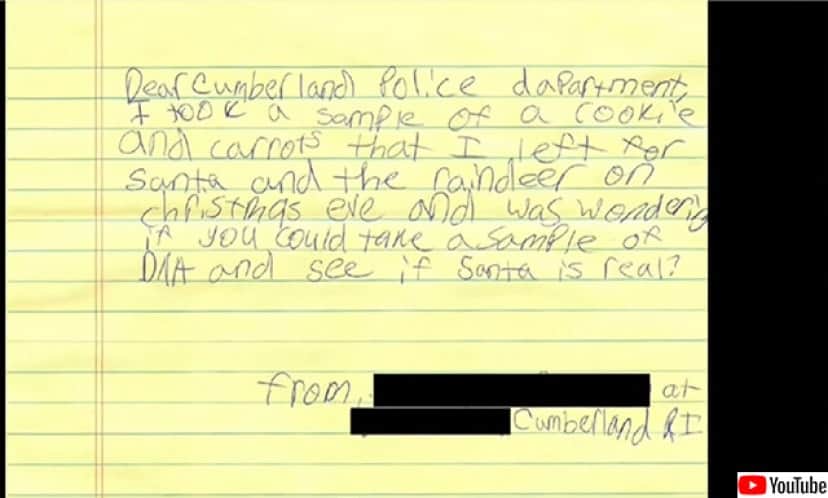 Dear Cumberland Police dapartment,
I took a sample of a cookie
and carrots that I left for
Santa and the raindeer on
christmas eve and was wondering
if you could take a sample of
DNA and see if Santa is real?
from,
at
Cumberland RI
YouTube